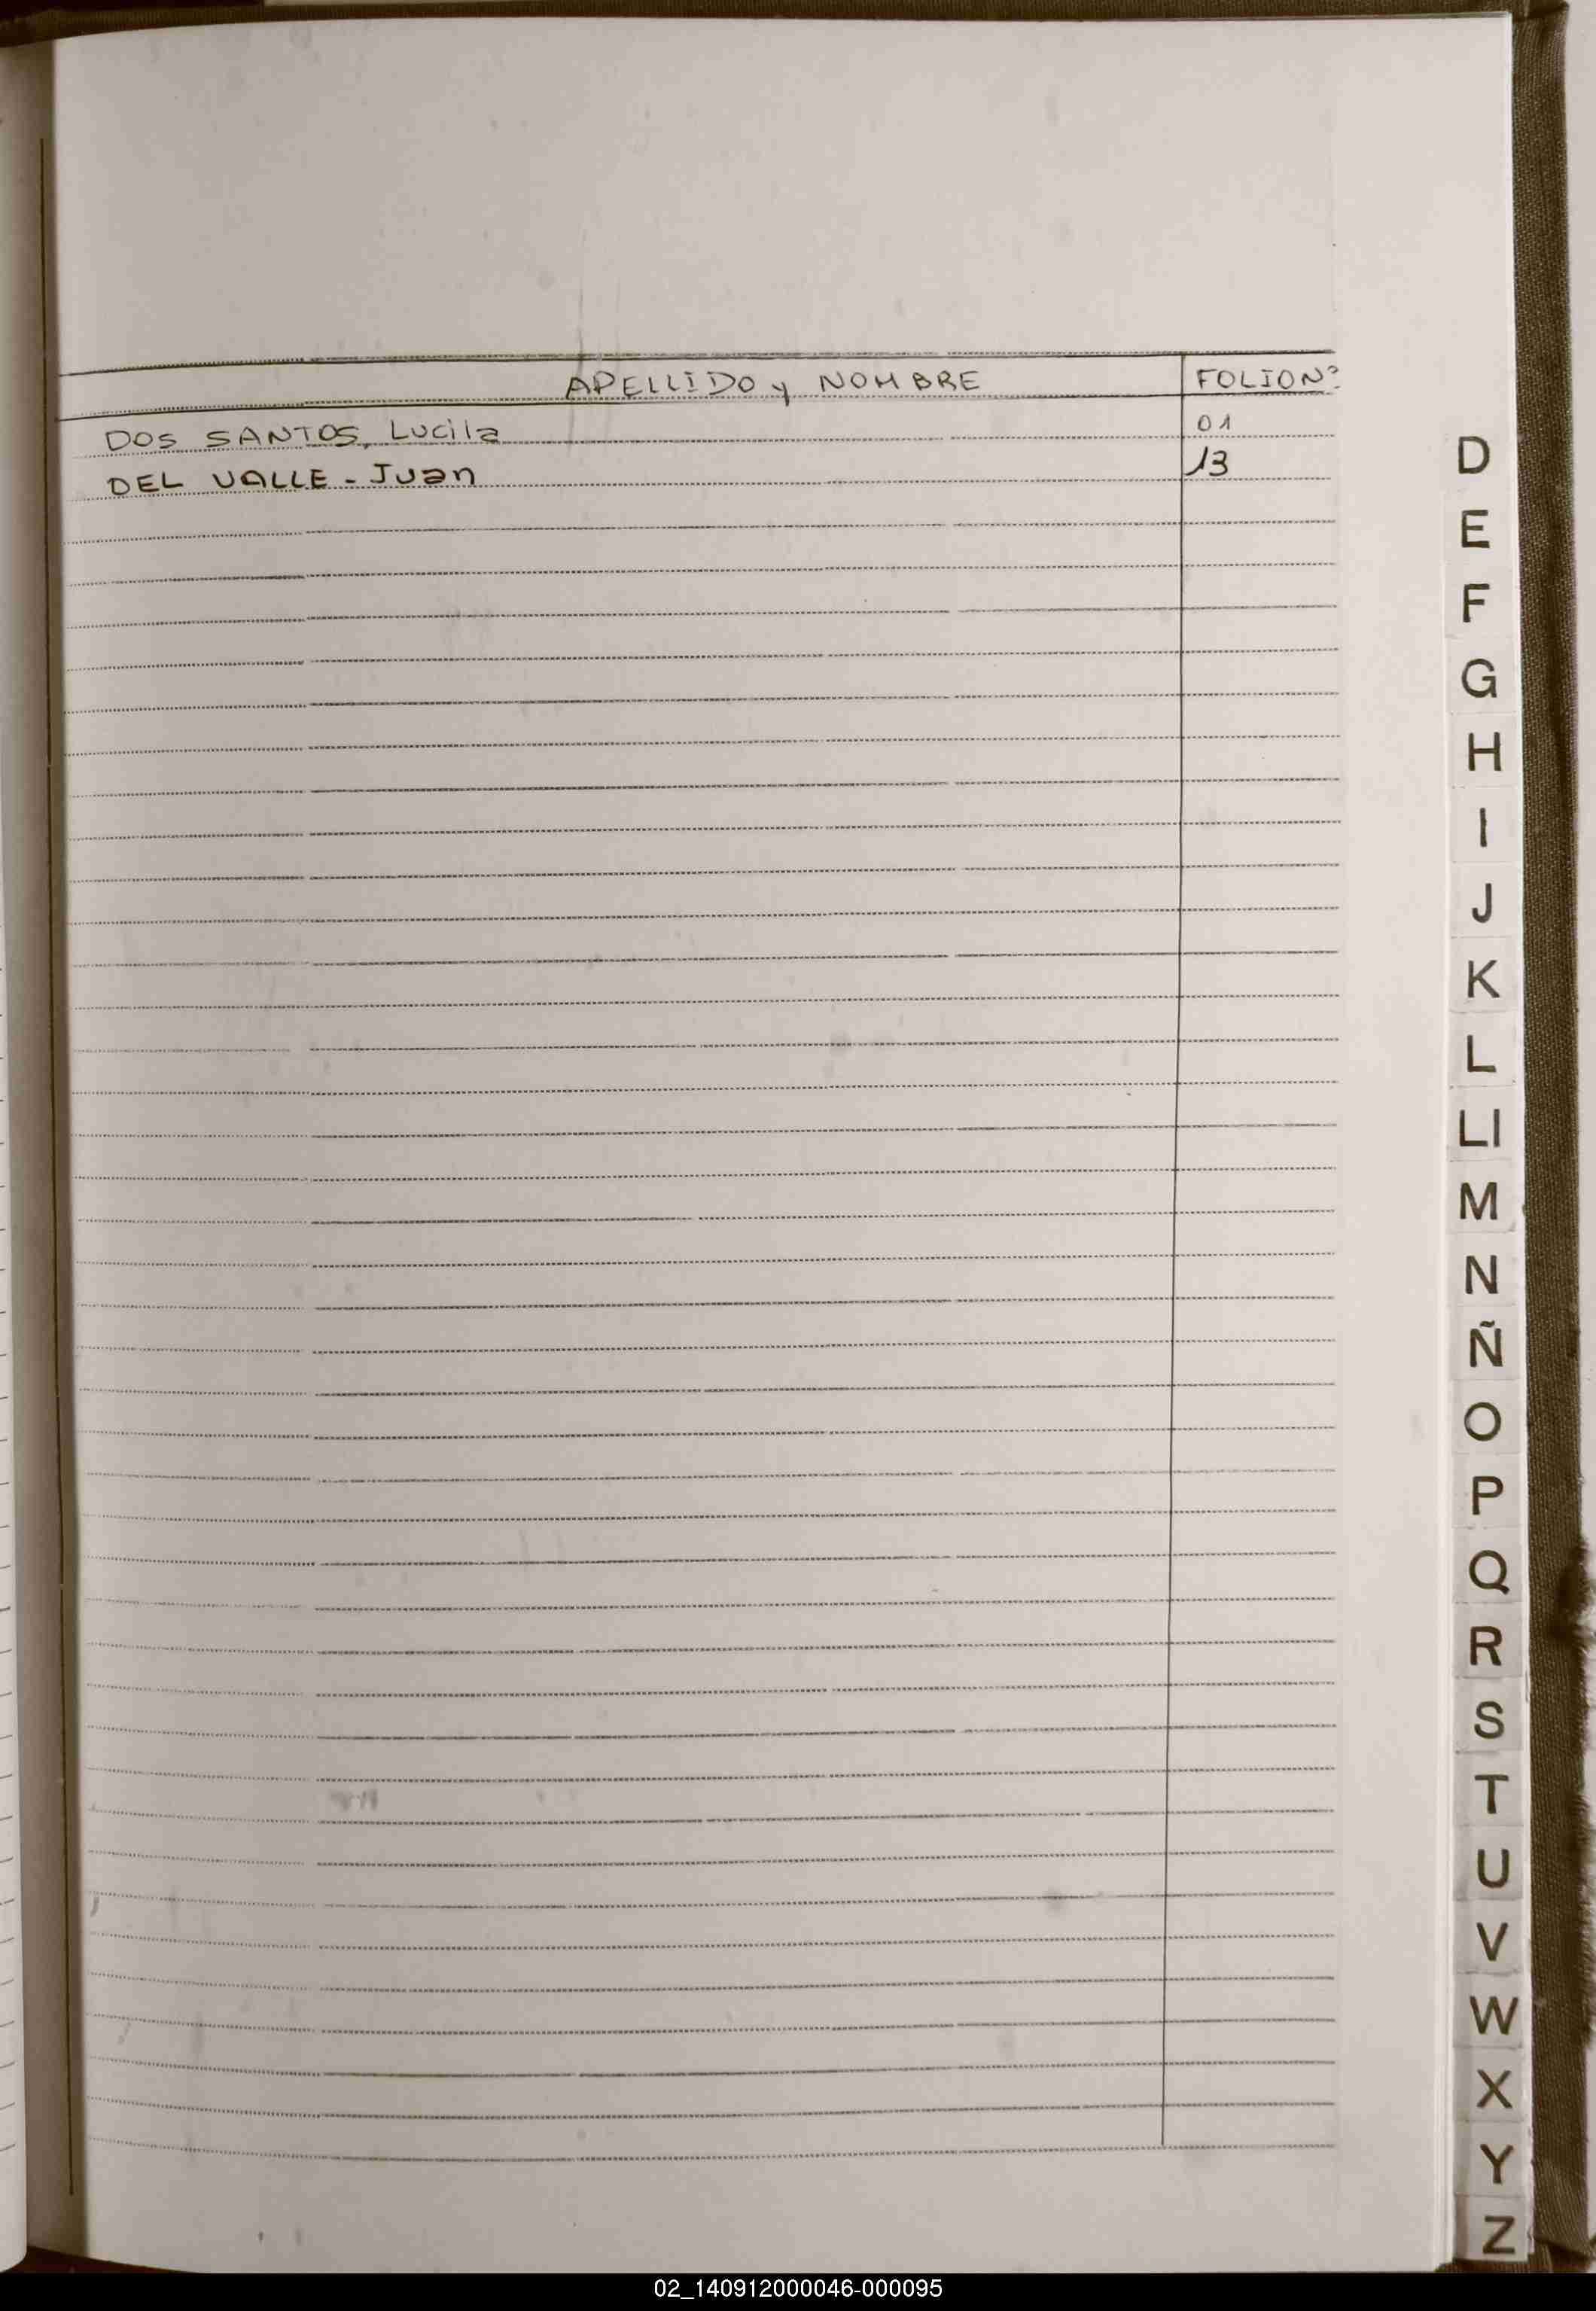 APELLIDO y NOMBRE FOLION°
DOS SANTOS, Lucila 01
DEL VALLE - Juan 13
D
E
F
G
H
I
J
K
L
Ll
M
N
Ñ
O
P
Q
R
S
T
U
V
W
X
Y
Z
02_140912000046-000095